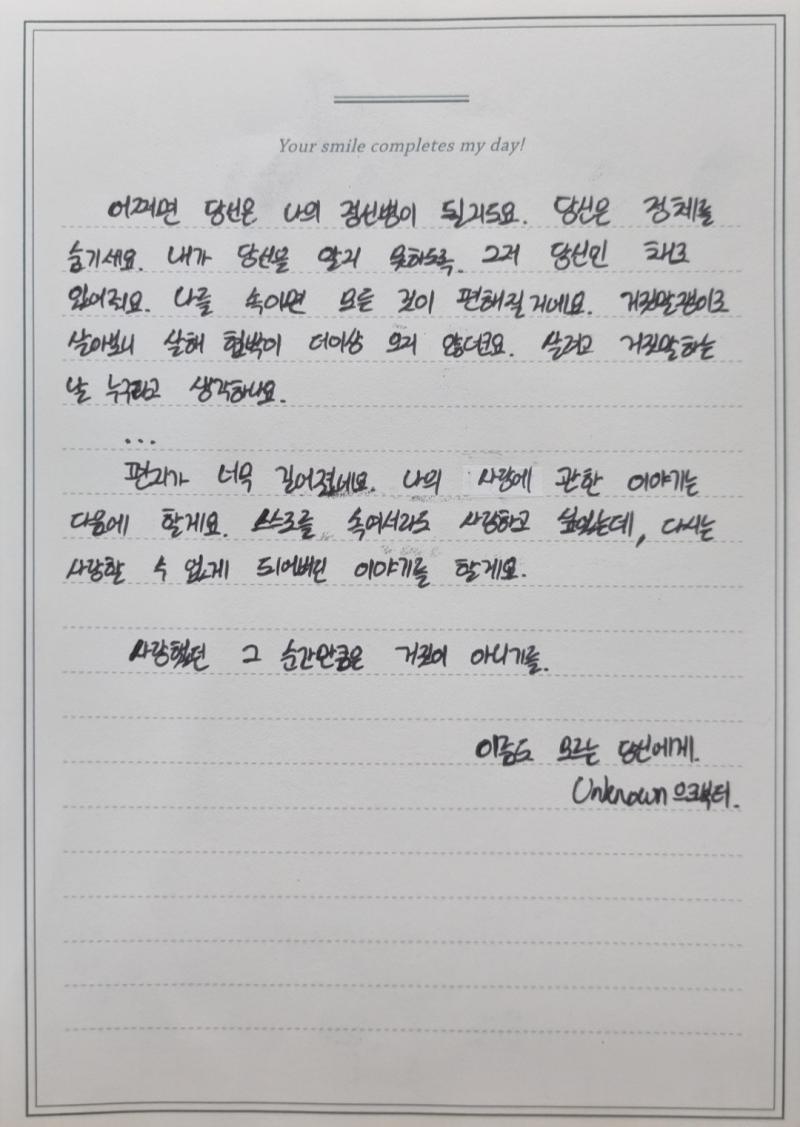 Your smile completes my day!
어쩌면 당신은 나의 정신병이 될지도요. 당신은 정체를
숨기세요. 내가 당신을 알지 못하도록. 그저 당신인 채로
있어줘요. 나를 속이면 모든 것이 편해질거네요. 거짓말쟁이로
살아보니 살해 협박이 더이상 오지 않더군요. 살려고 거짓말하는
날 누구라고 생각하나요.
...
편지가 너무 길어졌네요. 나의 사랑에 관한 이야기는
다음에 할게요. 스스로를 속여서라도 사랑하고 싶었는데, 다시는
사랑할 수 없게 되어버린 이야기를 할게요.
사랑했던 그 순간만큼은 거짓이 아니기를.
이름도 모르는 당신에게.
Unknown으로부터.